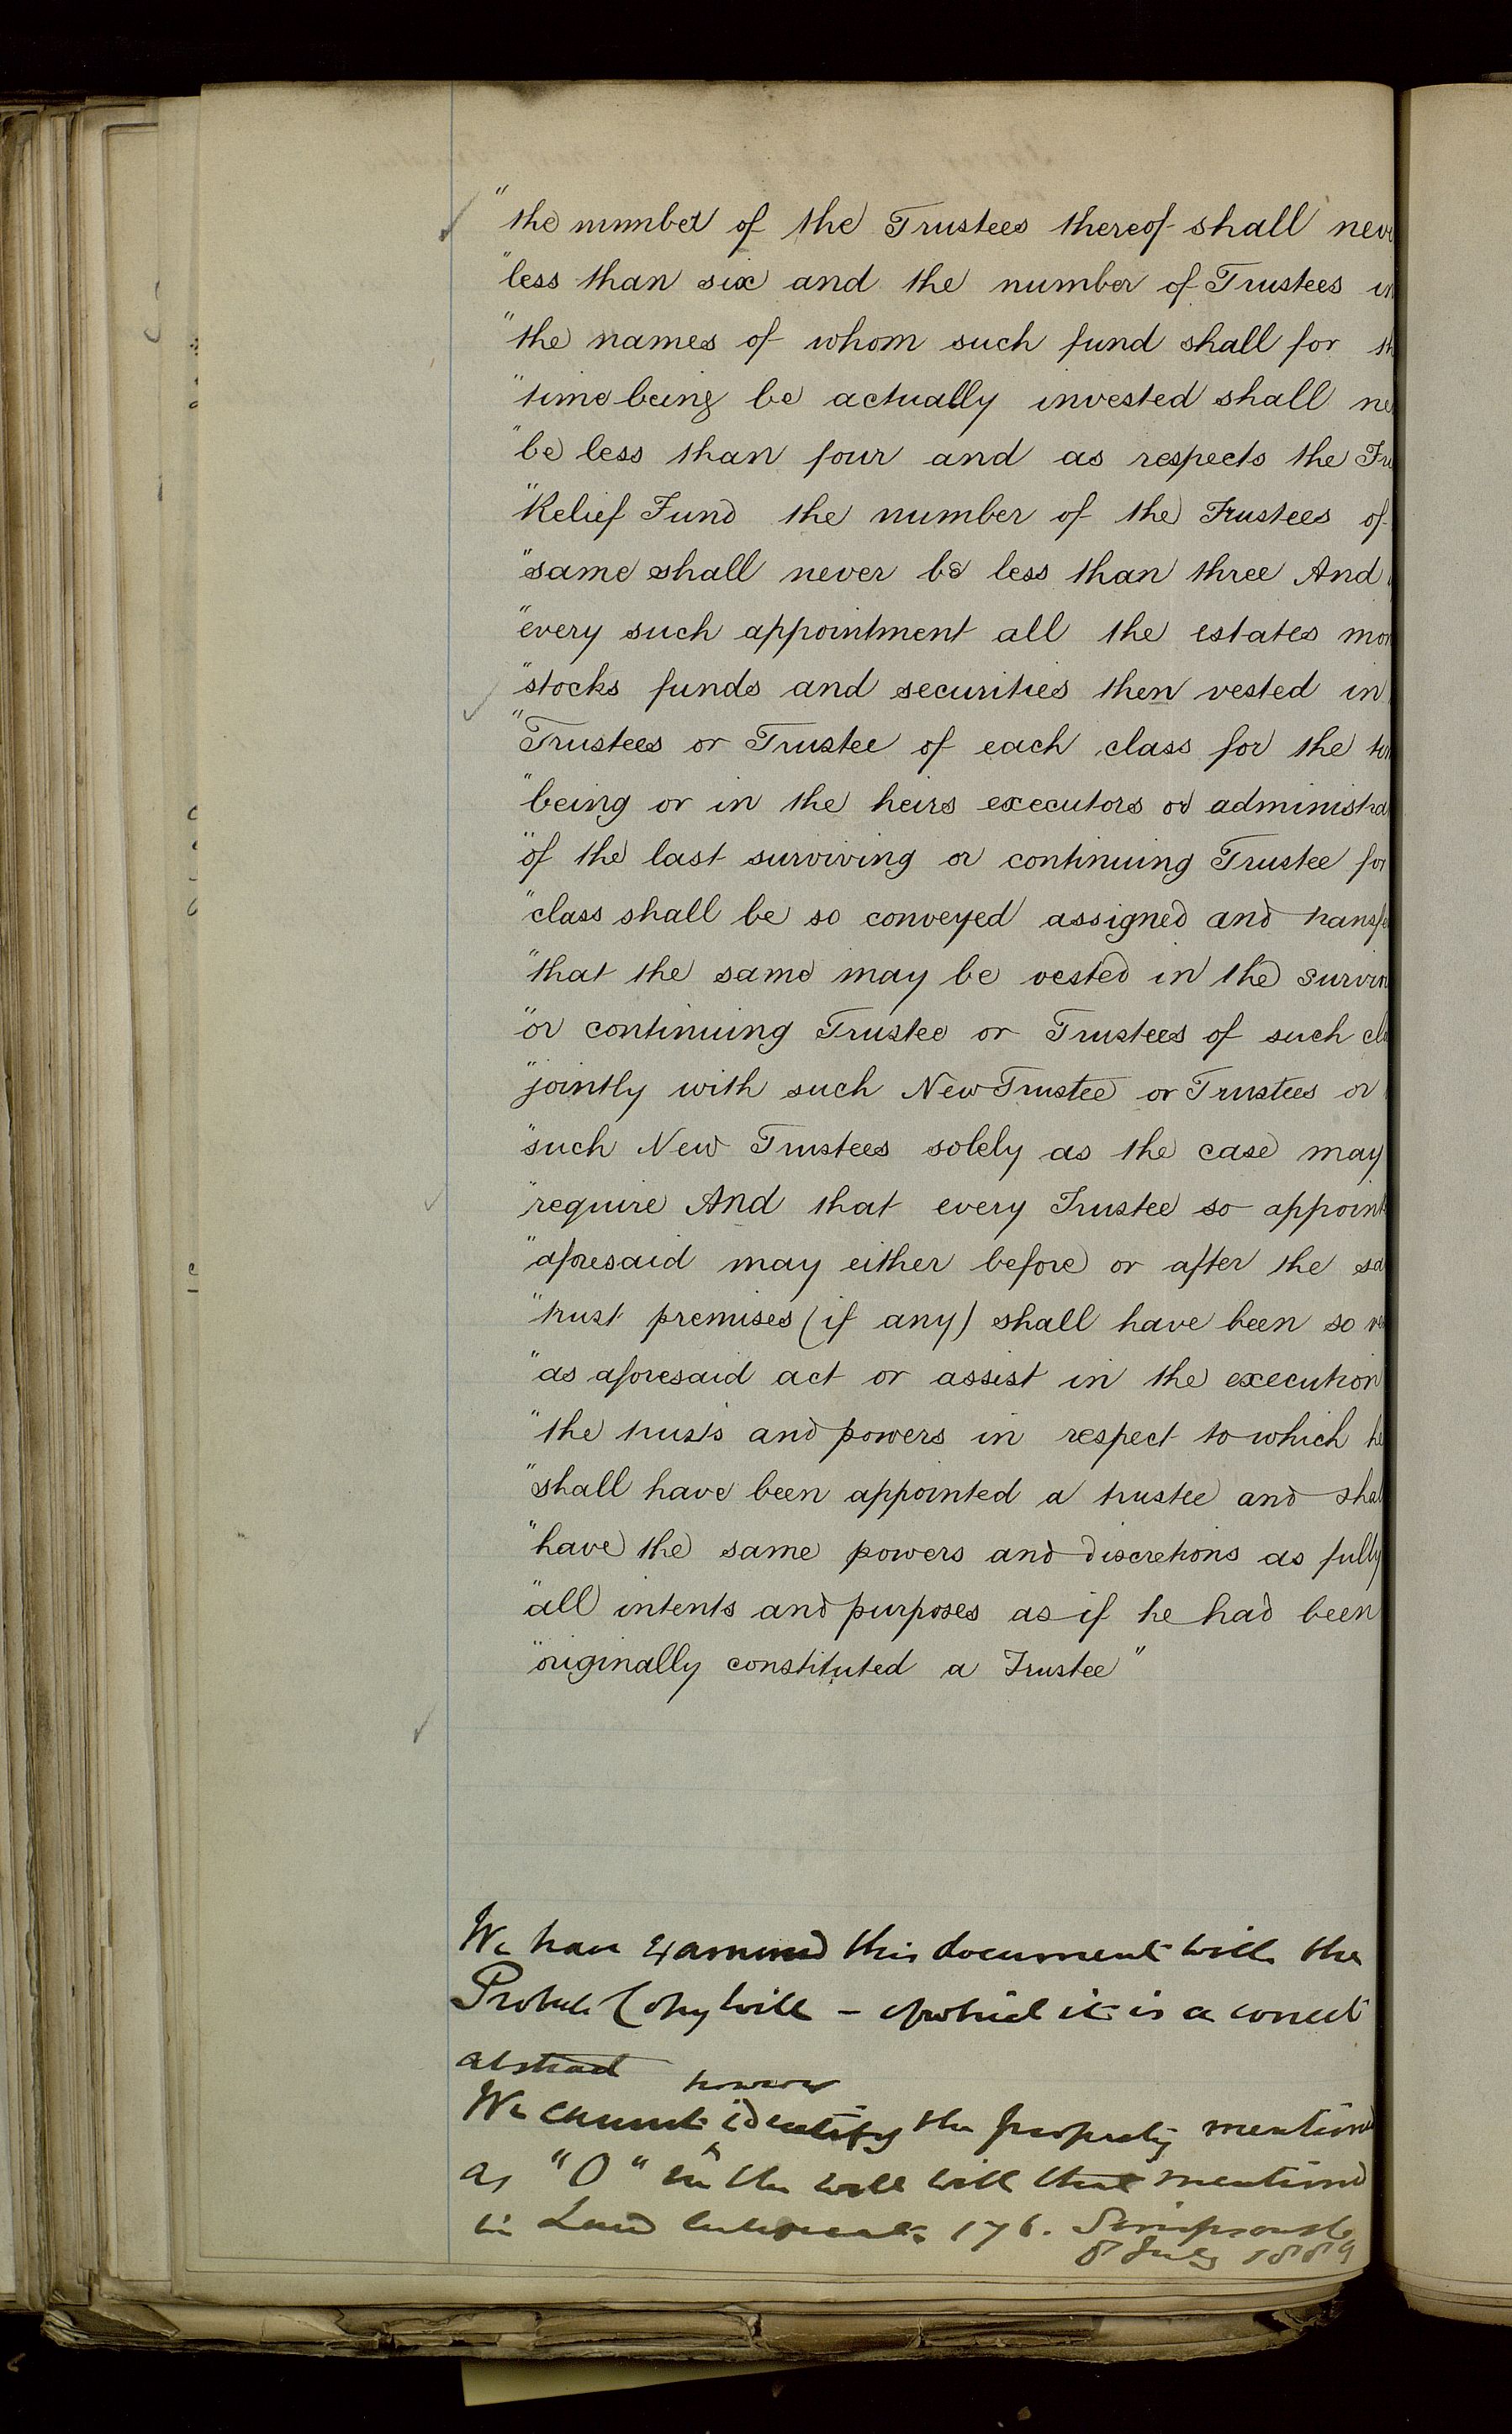 "the number of the Trustees thereof shall neve
"less than six and the number of Trustees in
"the names of whom such fund shall for th
"time being be actually invested shall ne
"be less than four and as respects the Fu
"Relief Fund the number of the Trustees of
"same shall never be less than three And
"every such appointment all the estates mon
"stocks funds and securities then vested in
"Trustees or Trustee of each class for the tim
"being or in the heirs executors or administra
"of the last surviving or continuing Trustee for
"class shall be so conveyed assigned and transfe
"that the same may be vested in the survivin
"or continuing Trustee or Trustees of such cla
"jointly with such New Trustee or Trustees or
"such New Trustees solely as the case may
"require And that every Trustee so appoint
"aforesaid may either before or after the sa
"trust premises (if any) shall have been so ve
"as aforesaid act or assist in the execution
"the trusts and powers in respect to which he
"shall have been appointed a trustee and shal
"have the same powers and discretions as fully
"all intents and purposes as if he had been
"originally constituted a Trustee"
We have examined this document with the
Probate Copy Will – of which it is a correct
abstract
however
We cannot identify the property mentioned
as "O" in the will with that mentioned
in Land 176.
8 July 1889